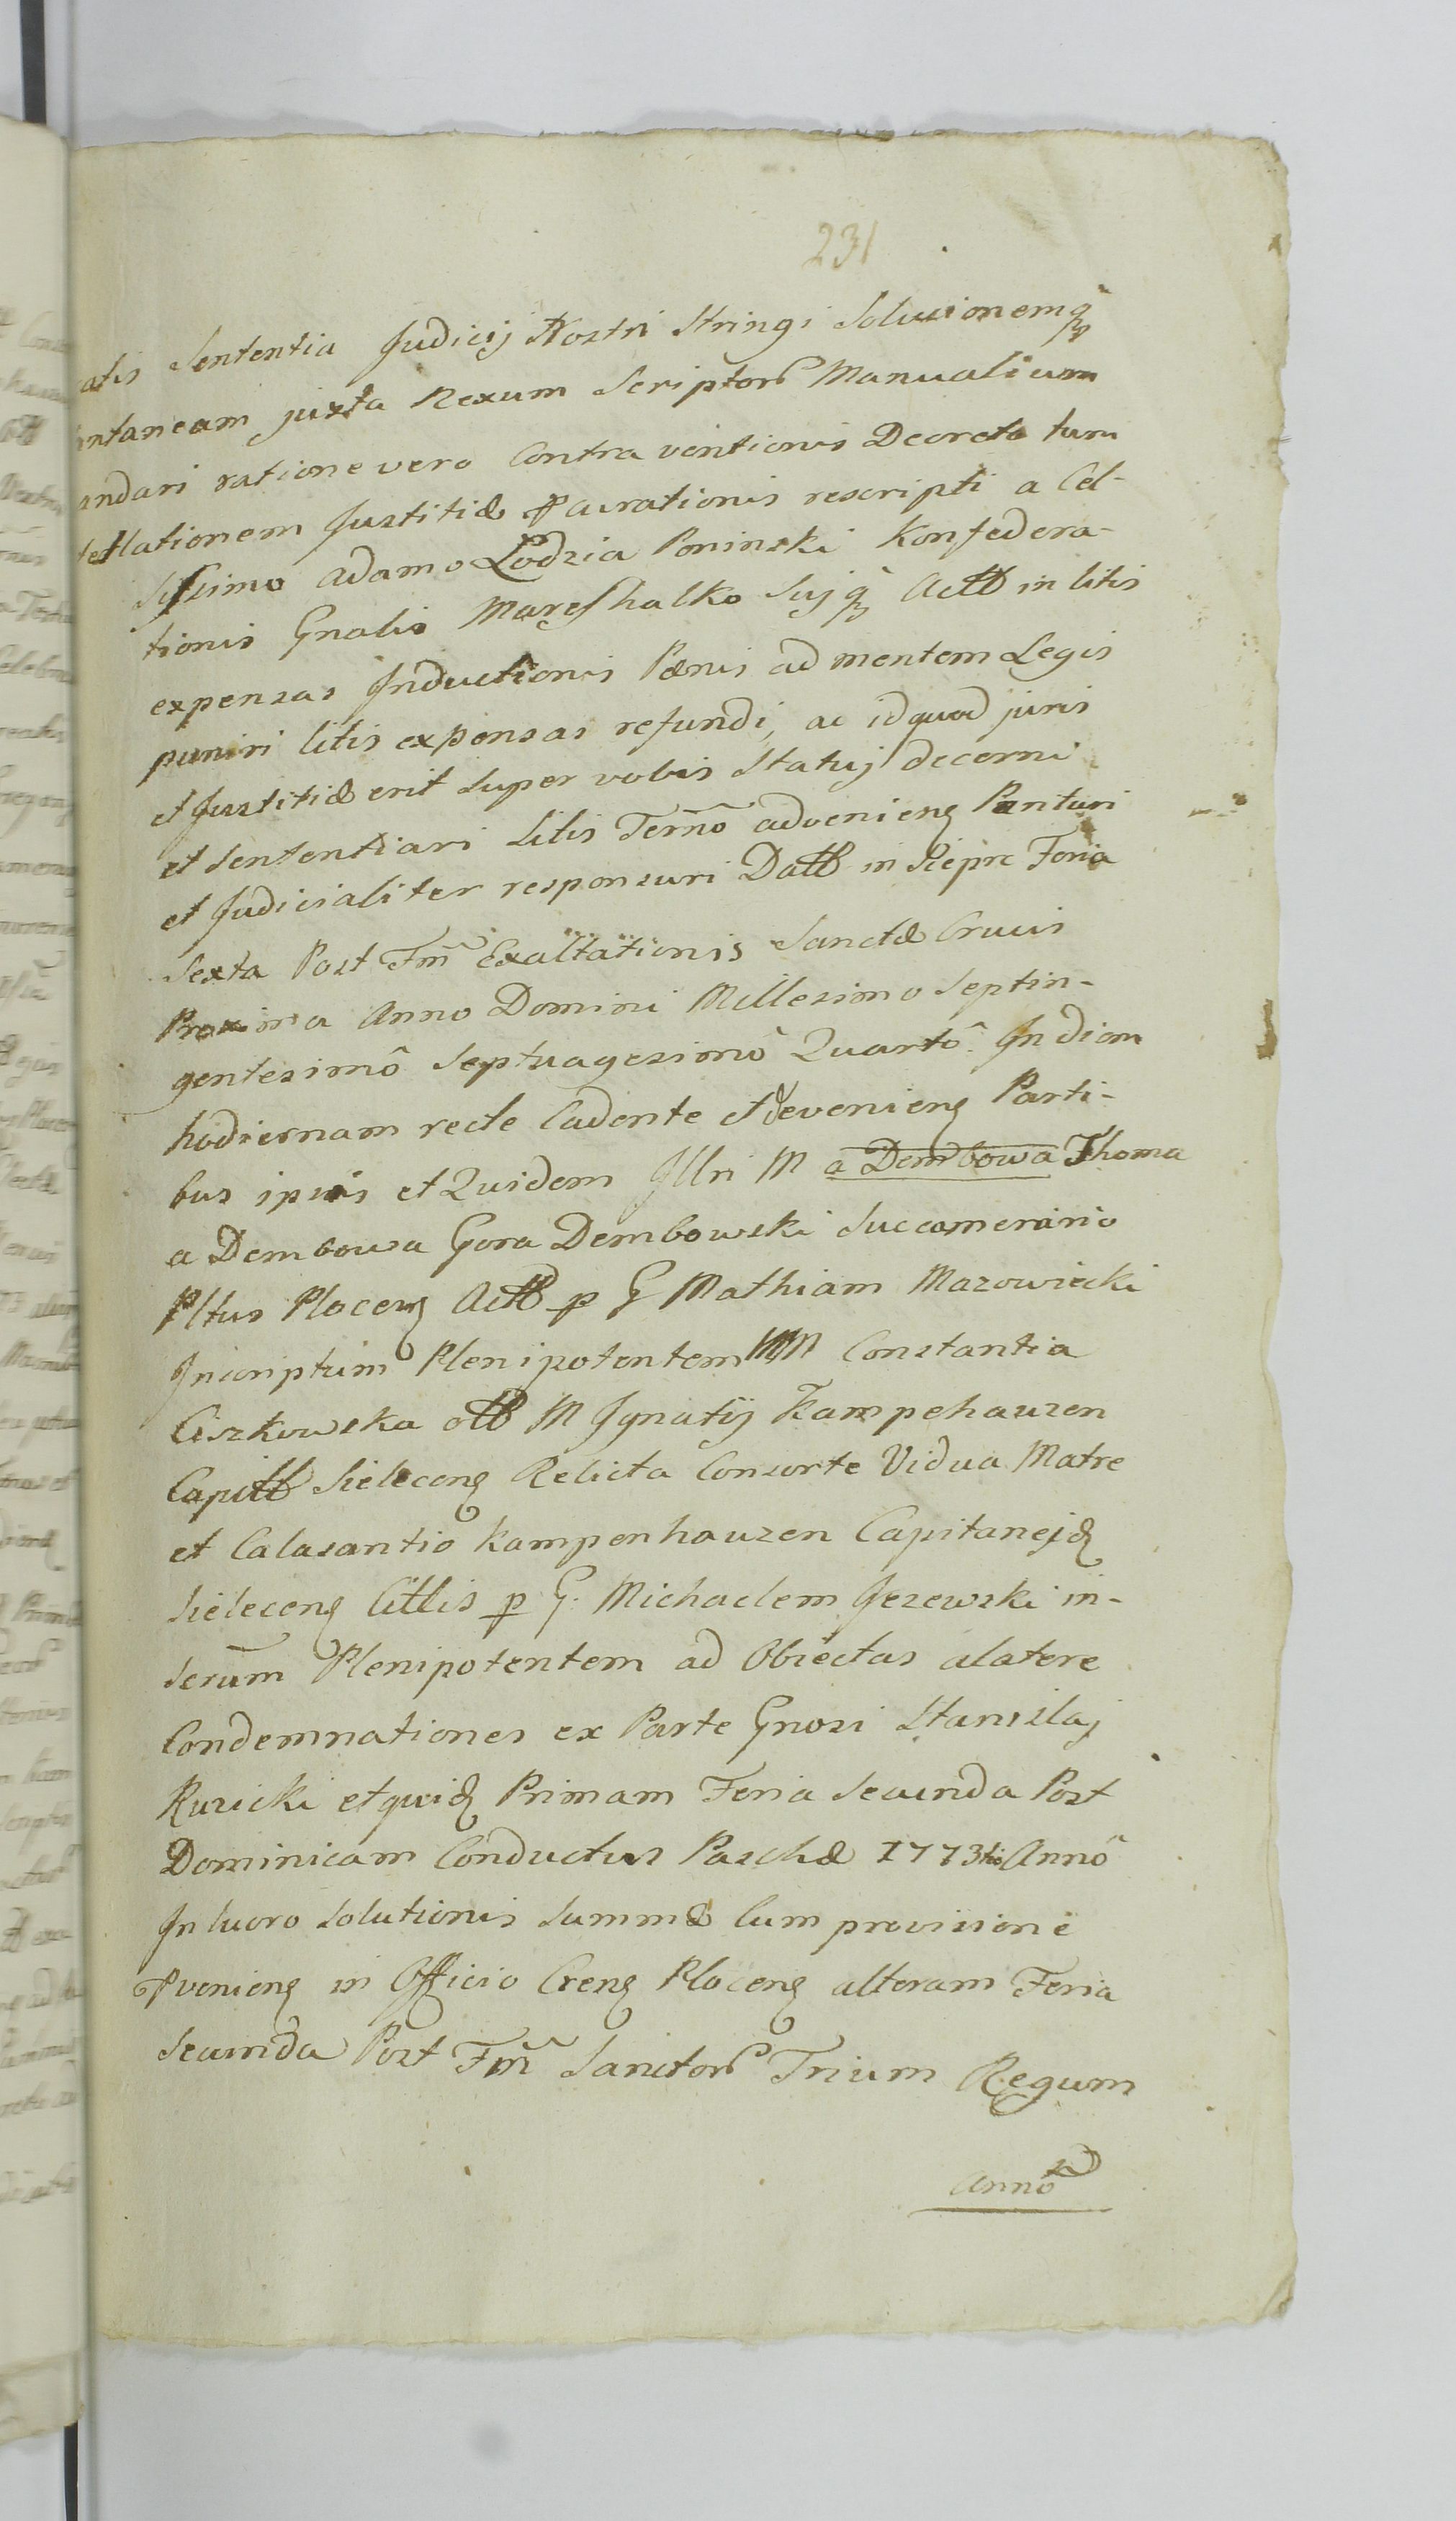 231
atis Sententia Judicij Nostri Stringi Solucionemq̃
ntaneam juxta Nexum Scriptor Manualium
andari ratione vero Contra ventionis Decreto tum
tellationem Justitiæ ac rescripti a Cel-
sissimo Adamo Łodzia Poninski Konfedera-
tionis Gnalis Mareshalko Sujq̃ Actt in litis
expensas Inductionis Pœnis ad mentem Legis
puniri litis expensas refundi, ac id quod juris
et Justitiæ erit super vobis Statuj decerni
et Sententiari Litis Termo advenien Parituri
et Judicialiter responsuri Datt in Siepre Feria
Sexta Post Fm̃ Exaltationis Sanctæ Crucis
Proxima Anno Domini Millesimo Septin-
gentesimô Septuagesimô Quartô. In diem
hodiernam recte Cadente et devenien Parti-
bus ipsis et Quidem Illri M a Dembowa Thoma
a Dembowa Gora Dembowski Succamerario
Pltus Placen Actt p G Mathiam Mazowiecki
Inscriptum Plenipotentem MM Constantia
Ciszkowska ott M Ignatij Kampehauzen
Capitt Sielecen Relicta Consorte Vidua Matre
et Calasantio Kampenhauzen Capitanejd
Sielecen Cittis p G. Michaelem Jezewski in-
serum Plenipotentem ad Obiectas alatere
Condemnationes ex Parte Gnosi Stanislaj
Ruzicki et quid Primam Feria Secunda Post
Dominicam Conductus Paschæ 1773tio Annô
In lucro Solutionis Summæ Cum provisione
Pvenien in Officio Cren Plocen alteram Feria
Secunda Post Fm̃ Sanctor Trium Regum
Annô